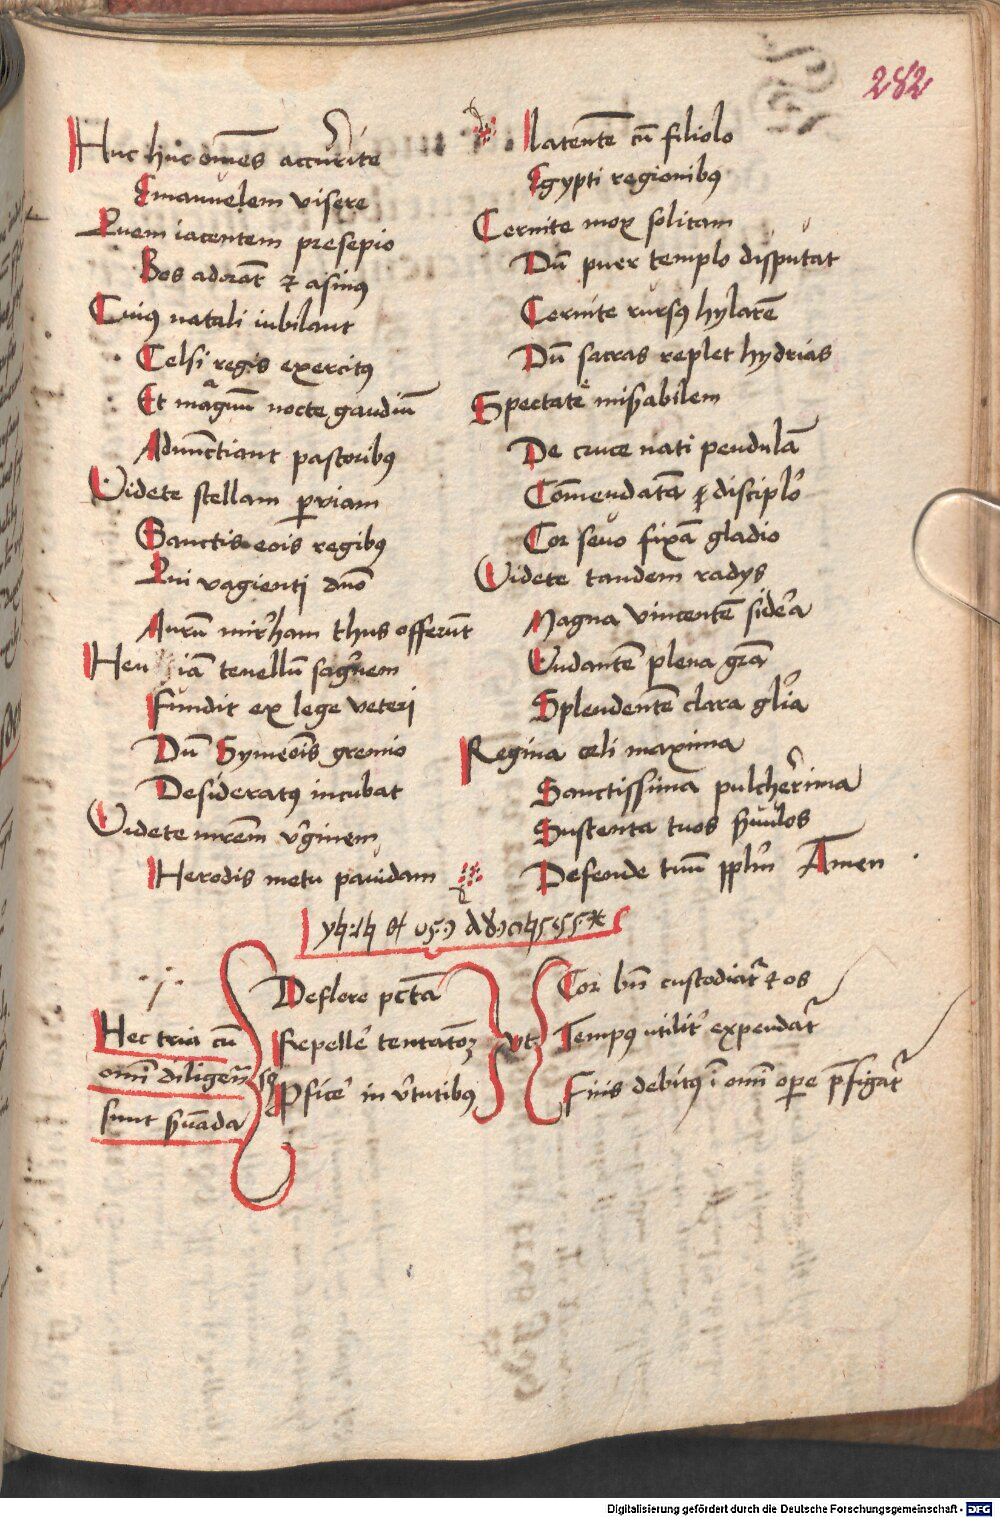 282
Huc huc om̄es accurrite
Emanuelem visere
Quem iacentem presepio
Bos adorāt et asinus
Cuiꝰ natali iubilant
Celsi regis exercitꝰ
Et magnū nocte gaudiū
Adnūctiant pastoribꝰ
Videte stellam ꝑviam
Sanctis eois regibꝰ
Qui vagienti dn̄o
Aurū mirrham thus offerūt
Heu iā tenellū sagʼnem
Fundit ex lege veteri
Dū Symeōis gremio
Desideratꝰ incubat
Videte mr̄em vʼginem
Herodis metu pauidam
latentē cū filiolo
Egypti regionibꝰ
Cernite mox solitam
Dū puer templo disputat
Cernite rursꝰ hylarē
Dū sacras replet hydrias
Spectate misʼabilem
De cruce nati pendulā
Cōmendatā ꝓ disciplʼo
Cor seuo fixā gladio
Videte tandem radys
Magna vincentē sidera
Eudantē plena grā
Splendentē clara glʼia
Regina celi maxima
Sanctissima pulcherʼima
Sustenta tuos sʼuulos
Defende tuū pplʼm Amen
Hec tria cū
omī diligen̄
sunt sʼuāda
Deflere pctā
Repellerʼ tentatōꝫ
Pficerʼ in vʼtutibꝰ
vt
Cor bn̄ custodiatʼ et os
Tempꝰ utilitʼ expendatʼ
Finis debitꝰ ī omī oꝑe p̄figatʼ
Digitalisierung gefördert durch die Deutsche Forschungsgemeinschaft - DFG